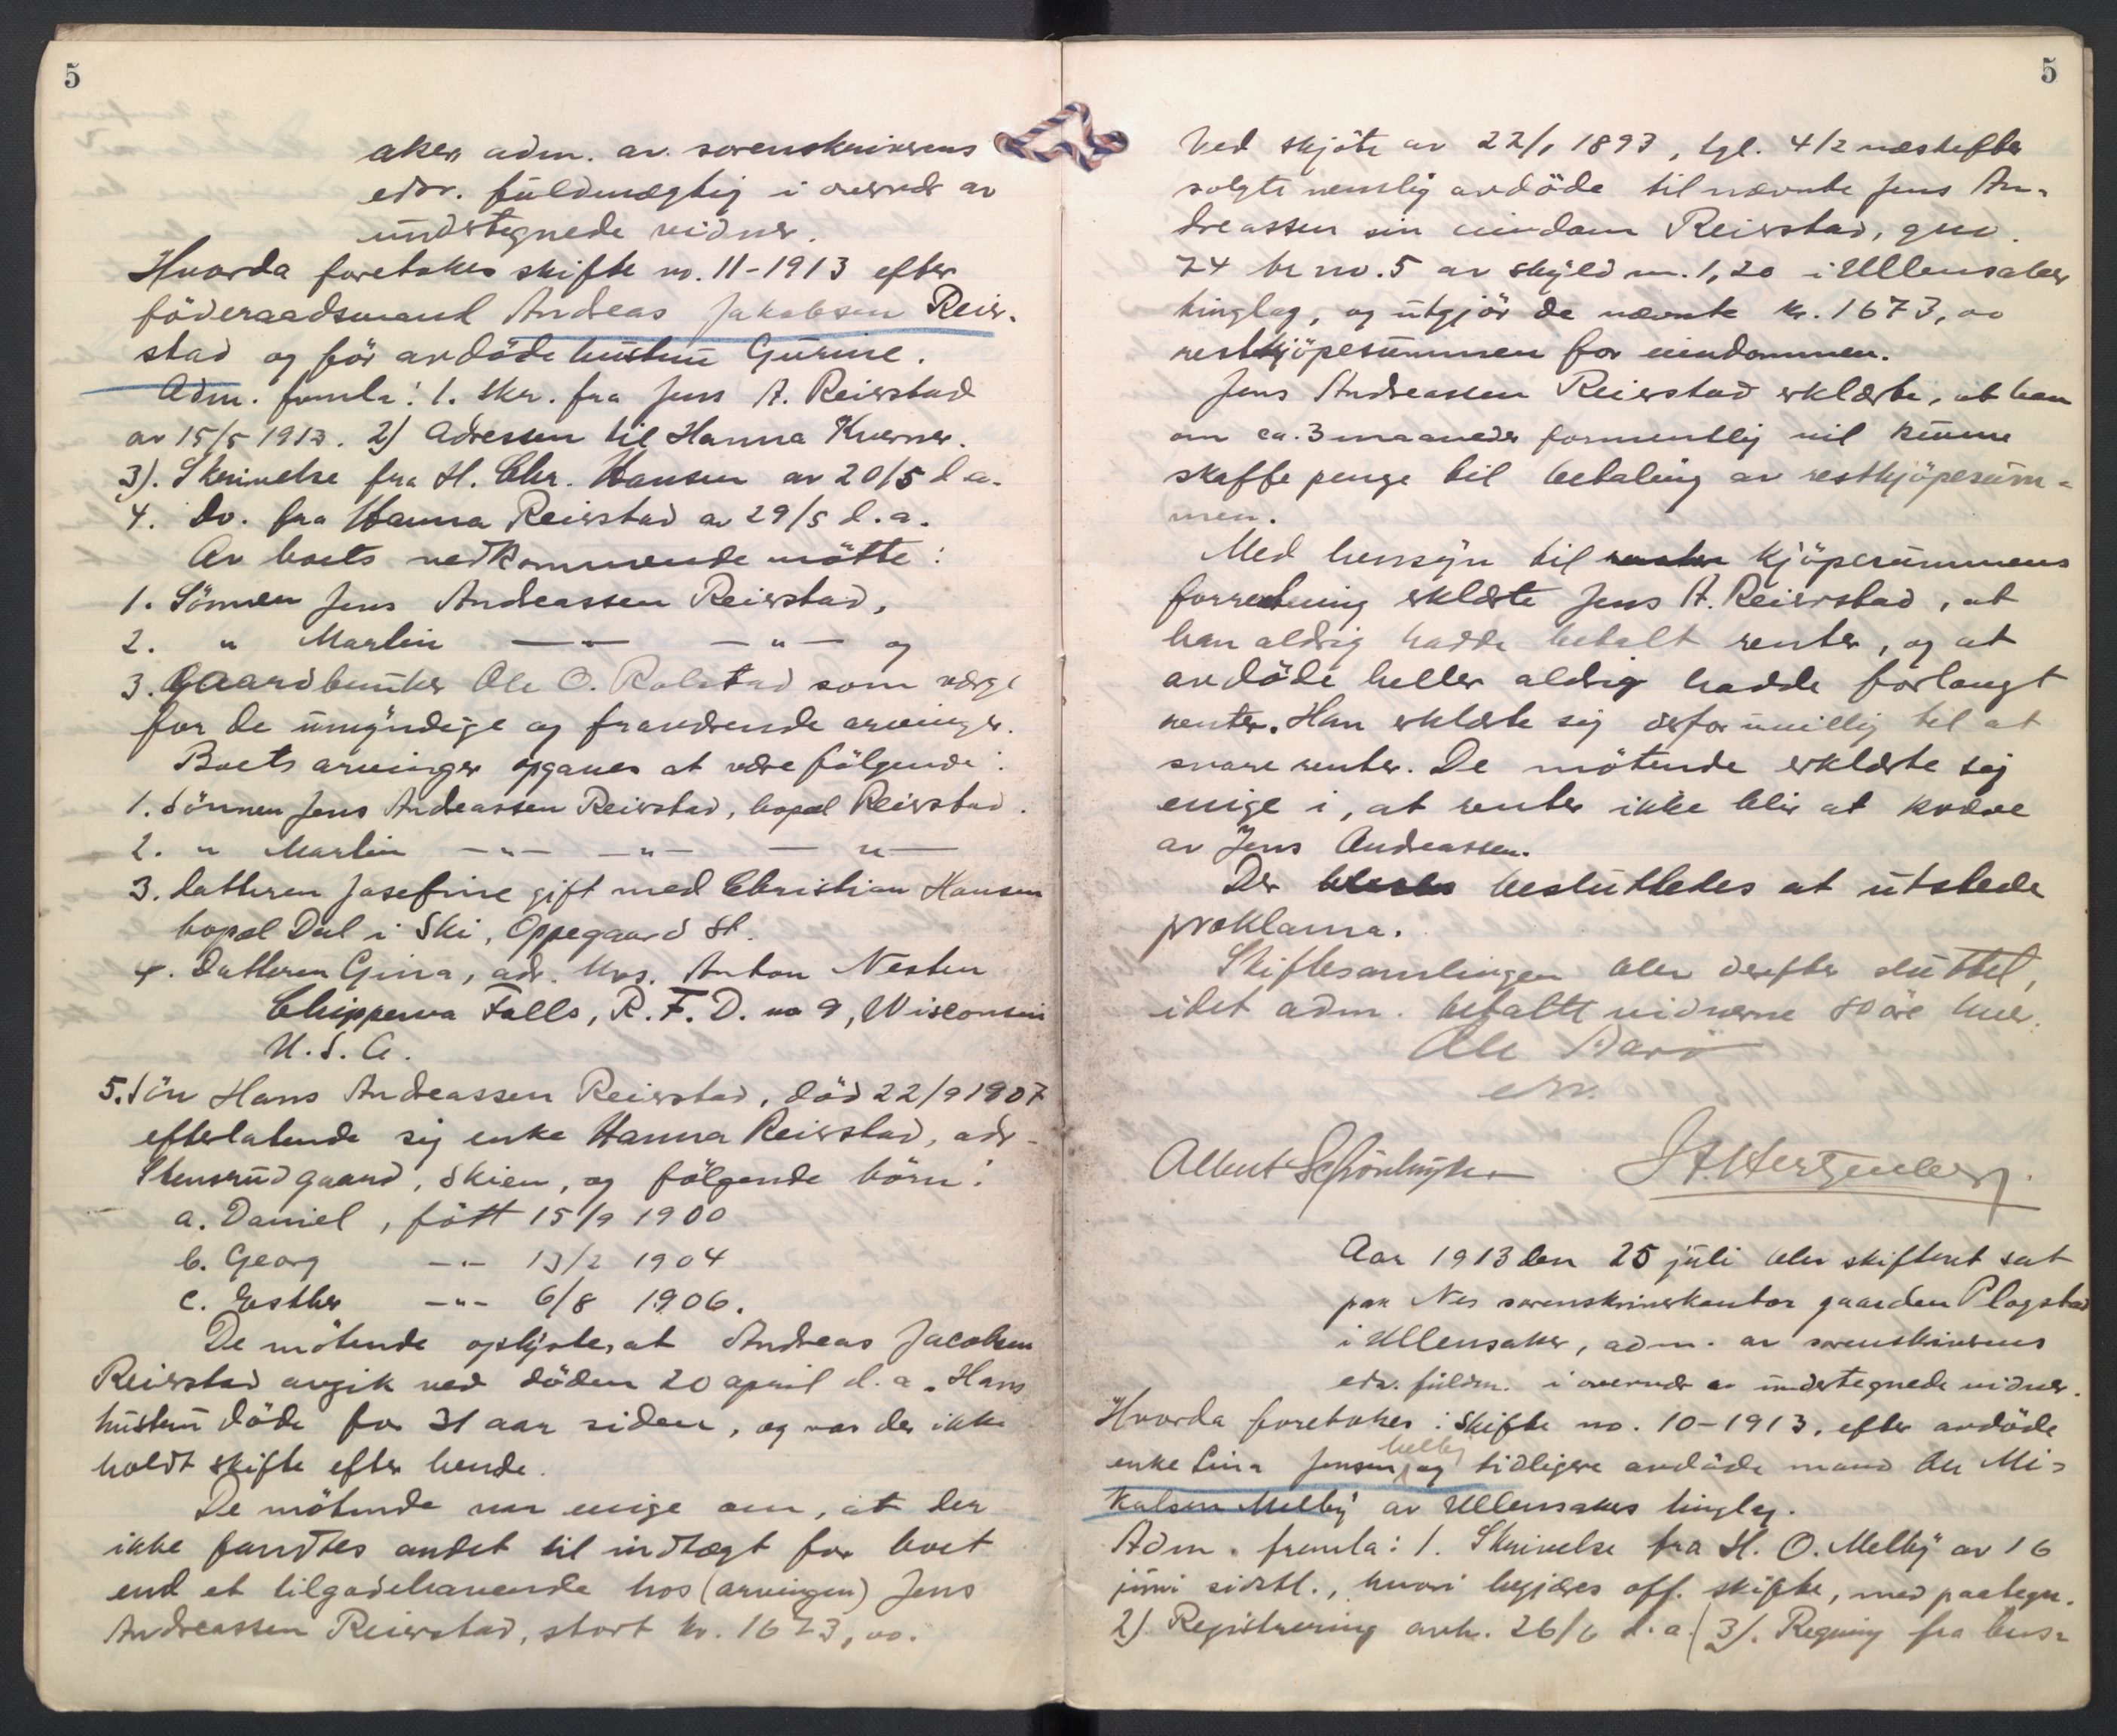 5
aker, adm. av sorenskriverens
edsv. fuldmægtig i overvær av
undertegnede vidner.
Hvorda foretokes skifte no. 11-1913 efter
föderaadsmand Andreas Jakobsen Reier-
stad og för avdöde hustru Gurine.
Adm. fremla: 1. Skr. fra Jens A. Reierstad
av 15/5 1913. 2) Adressen til Hanna Kverner.
3). Skrivelse fra H. Chr. Hansen av 20/5 d.a.
4. Do. fra Hanna Reierstad av 29/5 d.a.
Av boets vedkommende mötte:
1. Sönnen Jens Andreassen Reierstad,
2. " Martin —"— —"— og
3. Gaardbruker Ole O. Rolstad som værge
for de umyndige og fraværende arvinger.
Boets arvinger opgaves at være följende:
1. Sönnen Jens Andreassen Reierstad, bopæl Reierstad.
2. " Martin —"— —"— —"—
3. Datteren Josefine gift med Christian Hansen
bopæl Dal i Ski, Oppegaard St.
4. Datteren Gina, adr. Mrs. Anton Nesten
Chippewa Falls, R.F.D. no 9, Wisconsin
U.S.A.
5. Sön Hans Andreassen Reierstad, död 22/9 1907
efterlatende sig enke Hanna Reierstad, adr-
Stensrud gaard, Skien, og fölgende börn:
a. Daniel, fött 15/9 1900
b. Georg —"— 13/2 1904
c. Esther —"— 6/8 1906.
De mötende oplyste, at Andreas Jacobsen
Reierstad avgik ved döden 20 april d.a. Hans
hustru döde for 31 aar siden, og var der ikke
holdt skifte efter hende.
De mötende var enige om, at der
ikke fandtes andet til indtægt for boet
end et tilgodehavende hos (arvingen) Jens
Andreassen Reierstad, stort kr. 1673,00.
5
Ved skjöte av 22/1 1893, tgl. 4/2 næstefter
solgte nemlig avdöde til nævnte Jens An-
dreassen sin eiendom Reierstad, gno.
74 br no. 5 av skyld m. 1,20 i Ullensaker
tinglag, og utgjör de nævnte kr. 1673,00
restkjöpesummen for eiendommen.
Jens Andreassen Reierstad erklærte, at han
om ca. 3 maaneder formentlig vil kunne
skaffe penge til betaling av restkjöpesum-
men.
Med hensyn til kjöpesummens
forrentning erklærte Jens A. Reierstad, at
han aldrig hadde betalt renter, og at
avdöde heller aldrig hadde forlangt
renter. Han erklærte sig derfor uvillig til at
svare renter. De mötende erklærte sig
enige i, at renter ikke blir at kræve
av Jens Andreassen.
Der besluttedes at utstede
proklama.
Skiftesamlingen blev derefter sluttet,
idet adm. betalte vidnerne 80 öre hver.
Ole
edsv.
Albert
Aar 1913 den 25 juli blev skifteret sat
paa Nes sorenskriverkontor gaarden Plogstad
i Ullensaker, adm. av sorenskriverens
edsv. fuldm. i overvær av undertegnede vidner.
Hvorda foretokes: Skifte no. 10-1913, efter avdöde
enke Lina Jensen Melby og tidligere avdöde mand Ole Mi-
kalsen Melby av Ullensakers tinglag.
Adm. fremla: 1. Skrivelse fra H. O. Melby av 16
juni sidstl., hvori begjæres off. skifte, med paategn.
2) Registrering avh. 26/6 d.a. (3). Regning fra bus-